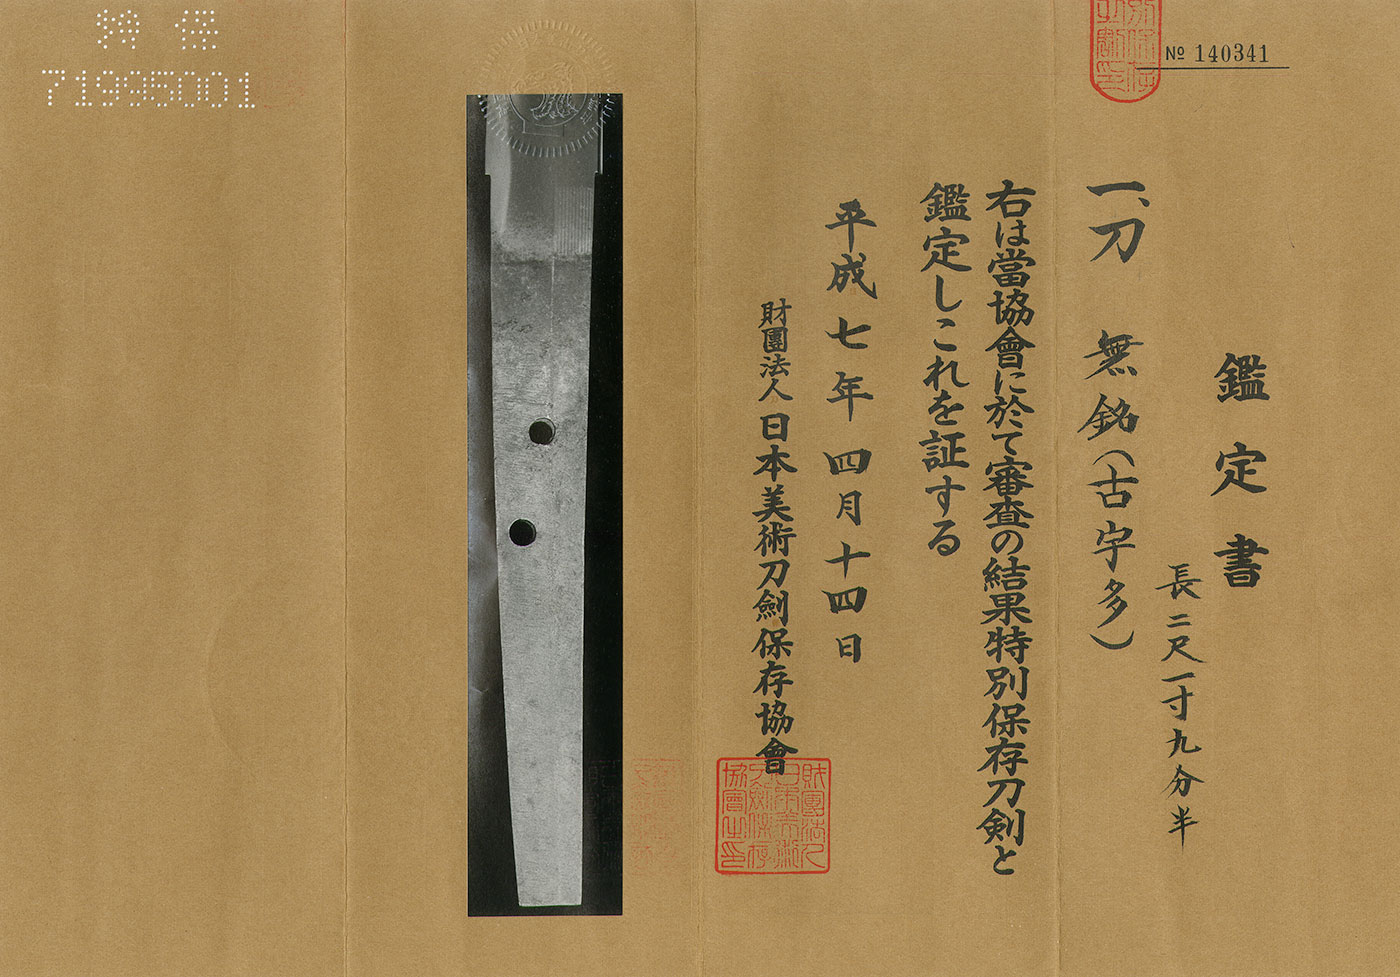 № 140341
鑑定書
長二尺一寸九分半
一、刀 無銘(古宇多)
右は當協會に於て審査の結果特別保存刀剣と
鑑定しこれを証する
平成七年四月十四日
財團法人日本美術刀劍保存協會
財團法人
日本美術
刀劍保存
協會之印
特保
71995001